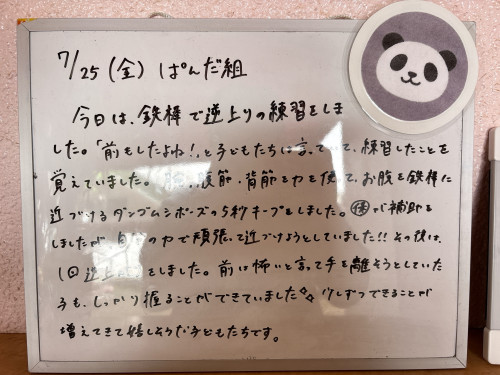 7/25(金) ぱんだ組
今日は、鉄棒で逆上りの練習をしま
した。「前もしたよね!」と子どもたちは言っていて、練習したことを
覚えていました。 腹筋・背筋を力を使って、お腹を鉄棒に
近づけるダンゴムシポーズの5秒キープをしました。㋭が補助を
しましたが、自分の力で頑張って近づけようとしていました!!その後は、
1回逆上りをしました。前は怖いと言って手を離そうとしていた
子も、しっかり握ることができていました✨少しずつできることが
増えてきて嬉しそうな子どもたちです。